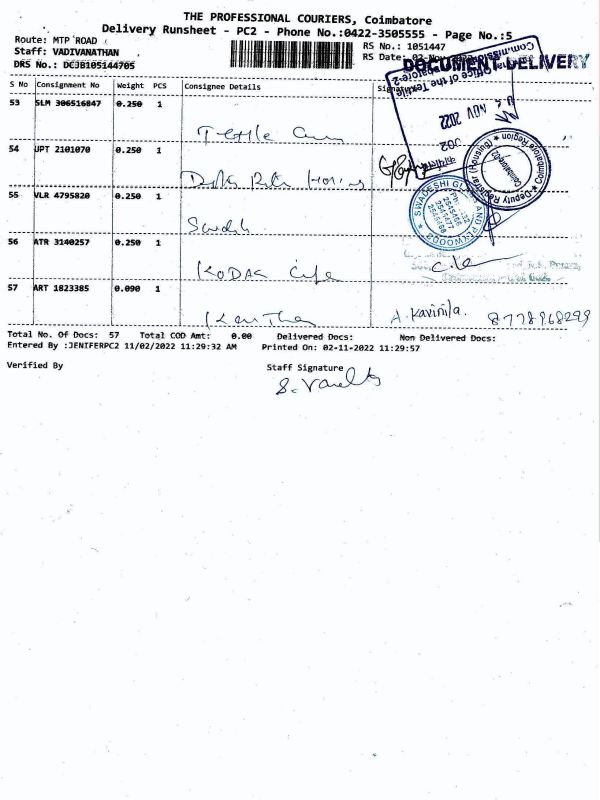 THE PROFESSIONAL COURIERS, Coimbatore
Delivery Runsheet - PC2 - Phone No.:0422-3505555 - Page No.:5
Route: MTP ROAD
RS No.: 1051447
Staff: VADIVANATHAN
RS Date: 02-Nov
DRS No.: DCJB105144705
DOCUMENT DELIVERY
S No Consignment No Weight PCS Consignee Details
53 SLM 306516847 0.250 1
54 UPT 2101070 0.250 1
55 VLR 4795820 0.250 1
56 ATR 3140257 0.250 1
KODAK
57 ART 1823385 0.090 1
A. Kavinila. 8778968299
NOV 2022
Office of the Textile
Deputy Registrar (Housing) Coimbatore Region
SWADESHI
AND PLYWOODS
Total No. Of Docs: 57 Total COD Amt: 0.00 Delivered Docs: Non Delivered Docs:
Entered By :JENIFERPC2 11/02/2022 11:29:32 AM Printed On: 02-11-2022 11:29:57
Verified By
Staff Signature